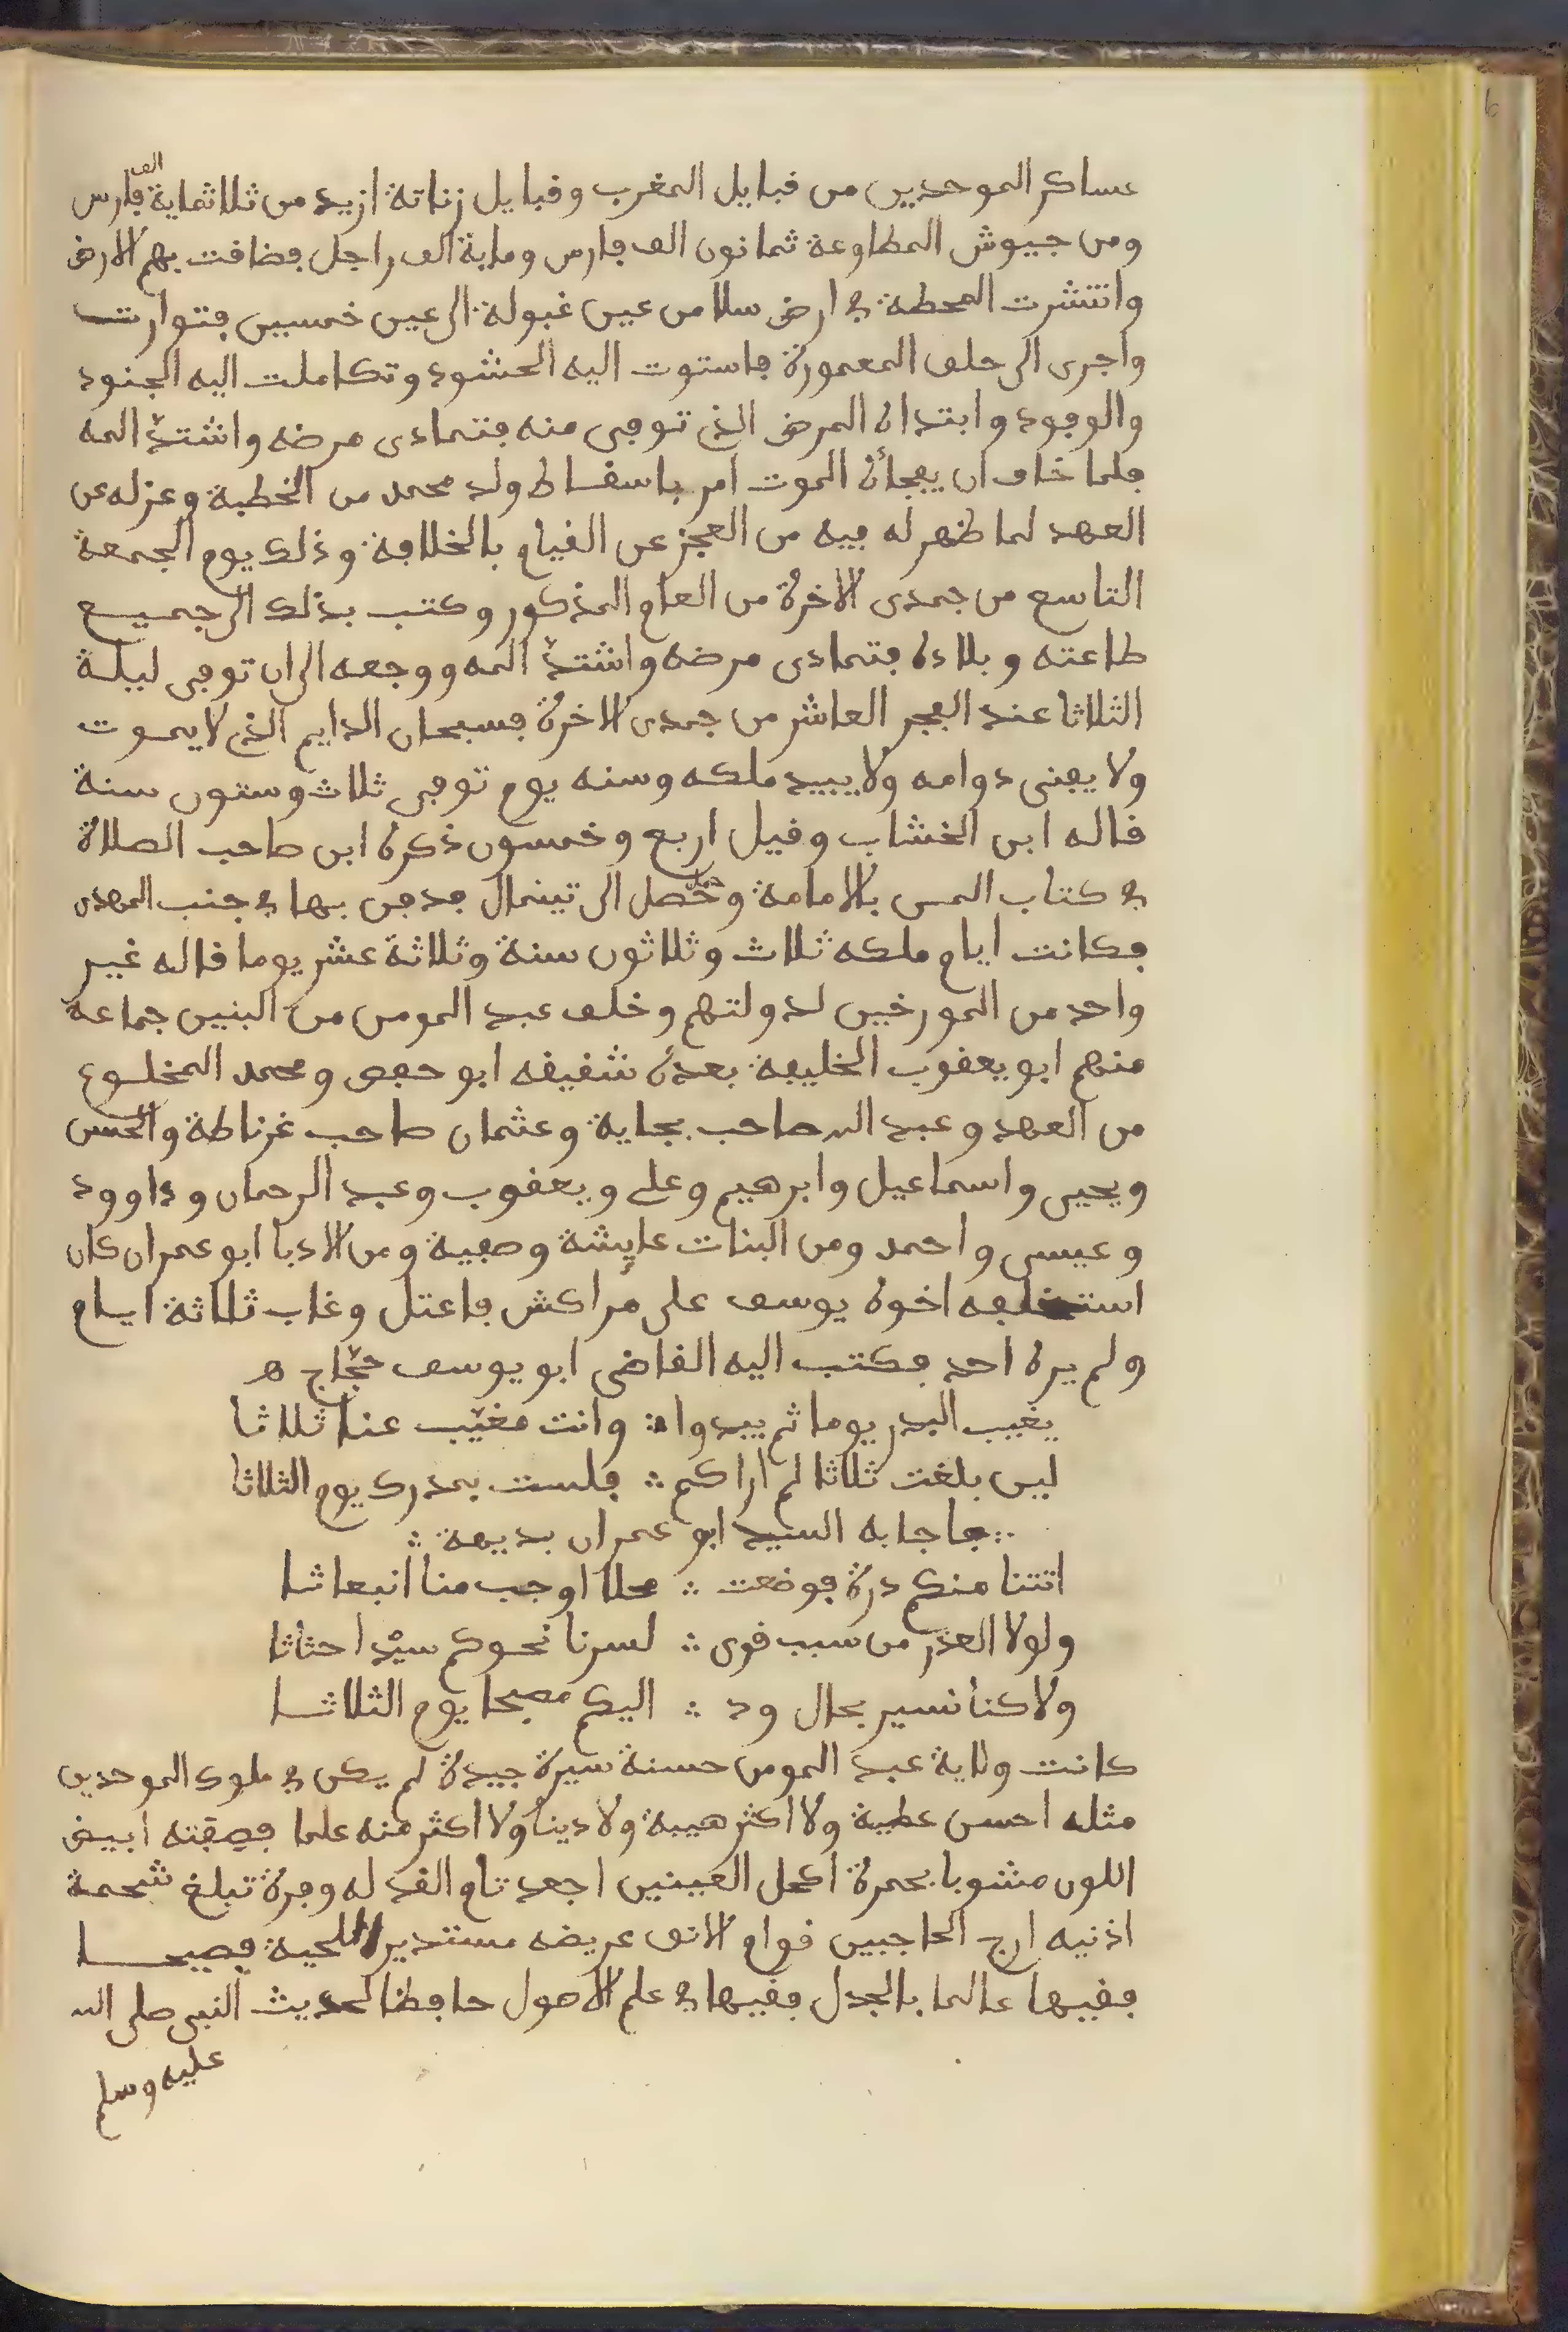 عساكر الموحدين من قبايل المغرب وقبايل زناتة ازيد من ثلاثماية الف فارس
ومن جيوش المطاوعة ثمانون الف فارس وماية الف راجل فضاقت بهم الارض
وانتشرت المحطة في ارض سلا من عين غبولة الى عين خمسين فتوارت
واجرى الى حلف المعمورة فاستوت اليه الحشود وتكاملت اليه الجنود
والوفود وابتداه المرض الذي توفى منه فتمادى مرضه واشتدّ المه
فلما خاف ان يفجأه الموت امر باسقاط ولد محمد من الخطبة وعزله عن
العهد لما ظهر له فيه من العجز عن القيام بالخلافة وذلك يوم الجمعة
التاسع من جمدى الاخرة من العام المذكور وكتب بذلك الى جميع
طاعته وبلاده فتمادى مرضه واشتدّ المه ووجعه الى ان توفى ليلة
الثلاثا عند الفجر العاشر من جمدى الاخرة فسبحان الدايم الذي لا يموت
ولا يفنى دوامه ولا يبيد ملكه وسنه يوم توفى ثلاث وستون سنة
قاله ابن الخشاب وقيل اربع وخمسون ذكره ابن صاحب الصلاة
في كتاب المن بالامامة وحمل الى تينمال فدفن بها في جنب المهدى
فكانت ايام ملكه ثلاث وثلاثون سنة وثلاثة عشر يوما قاله غير
واحد من المورخين لدولتهم وخلف عبد المومن من البنين جماعة
منهم ابو يعقوب الخليفة بعده شقيقه ابو حفص ومحمد المخلوع
من العهد وعبد الله صاحب بجاية وعثمان صاحب غرناطة والحسن
ويحيى واسماعيل وابرهيم وعلي ويعقوب وعبد الرحمان وداوود
وعيسى واحمد ومن البنات عايشة وصفية ومن الادبا ابو عمران كان
استخلفه اخوه يوسف على مراكش فاعتل وغاب ثلاثة ايام
ولم يره احد فكتب اليه القاضى ابو يوسف حجّاج ه
يغيب البدر يوما ثم يبدوا ∴ وانت مغيّب عنا ثلاثا
لين بلغت ثلاثا لم اراكم ∴ فلست بمدرك يوم الثلاثا
∴ فاجابه السيد ابو عمران بديهة ∴
اتتنا منكم درة فوضعت ∴ محلا اوجب منا انبعاثا
ولولا العذر من سبب قوى ∴ لسرنا نحوكم سيْرا حثاثا
ولاكنا نسير بحال ود ∴ اليكم مصبحا يوم الثلاثا
كانت ولاية عبد المومن حسنة سيرة جيدة لم يكن في ملوك الموحدين
مثله احسن عطية ولا اكثر هيبة ولا دينا ولا اكثر منه علما فصفته ابيض
اللون مشوبا بحمرة اكحل العينين اجعد تام القد له وفرة تبلغ شحمة
اذنيه ازج الحاجبين قوام الانف عريضه مستدير اللحية فصيحا
فقيها عالما بالجدل فقيها في علم الاصول حافظا لحديث النبى صلى الله
عليه وسلم